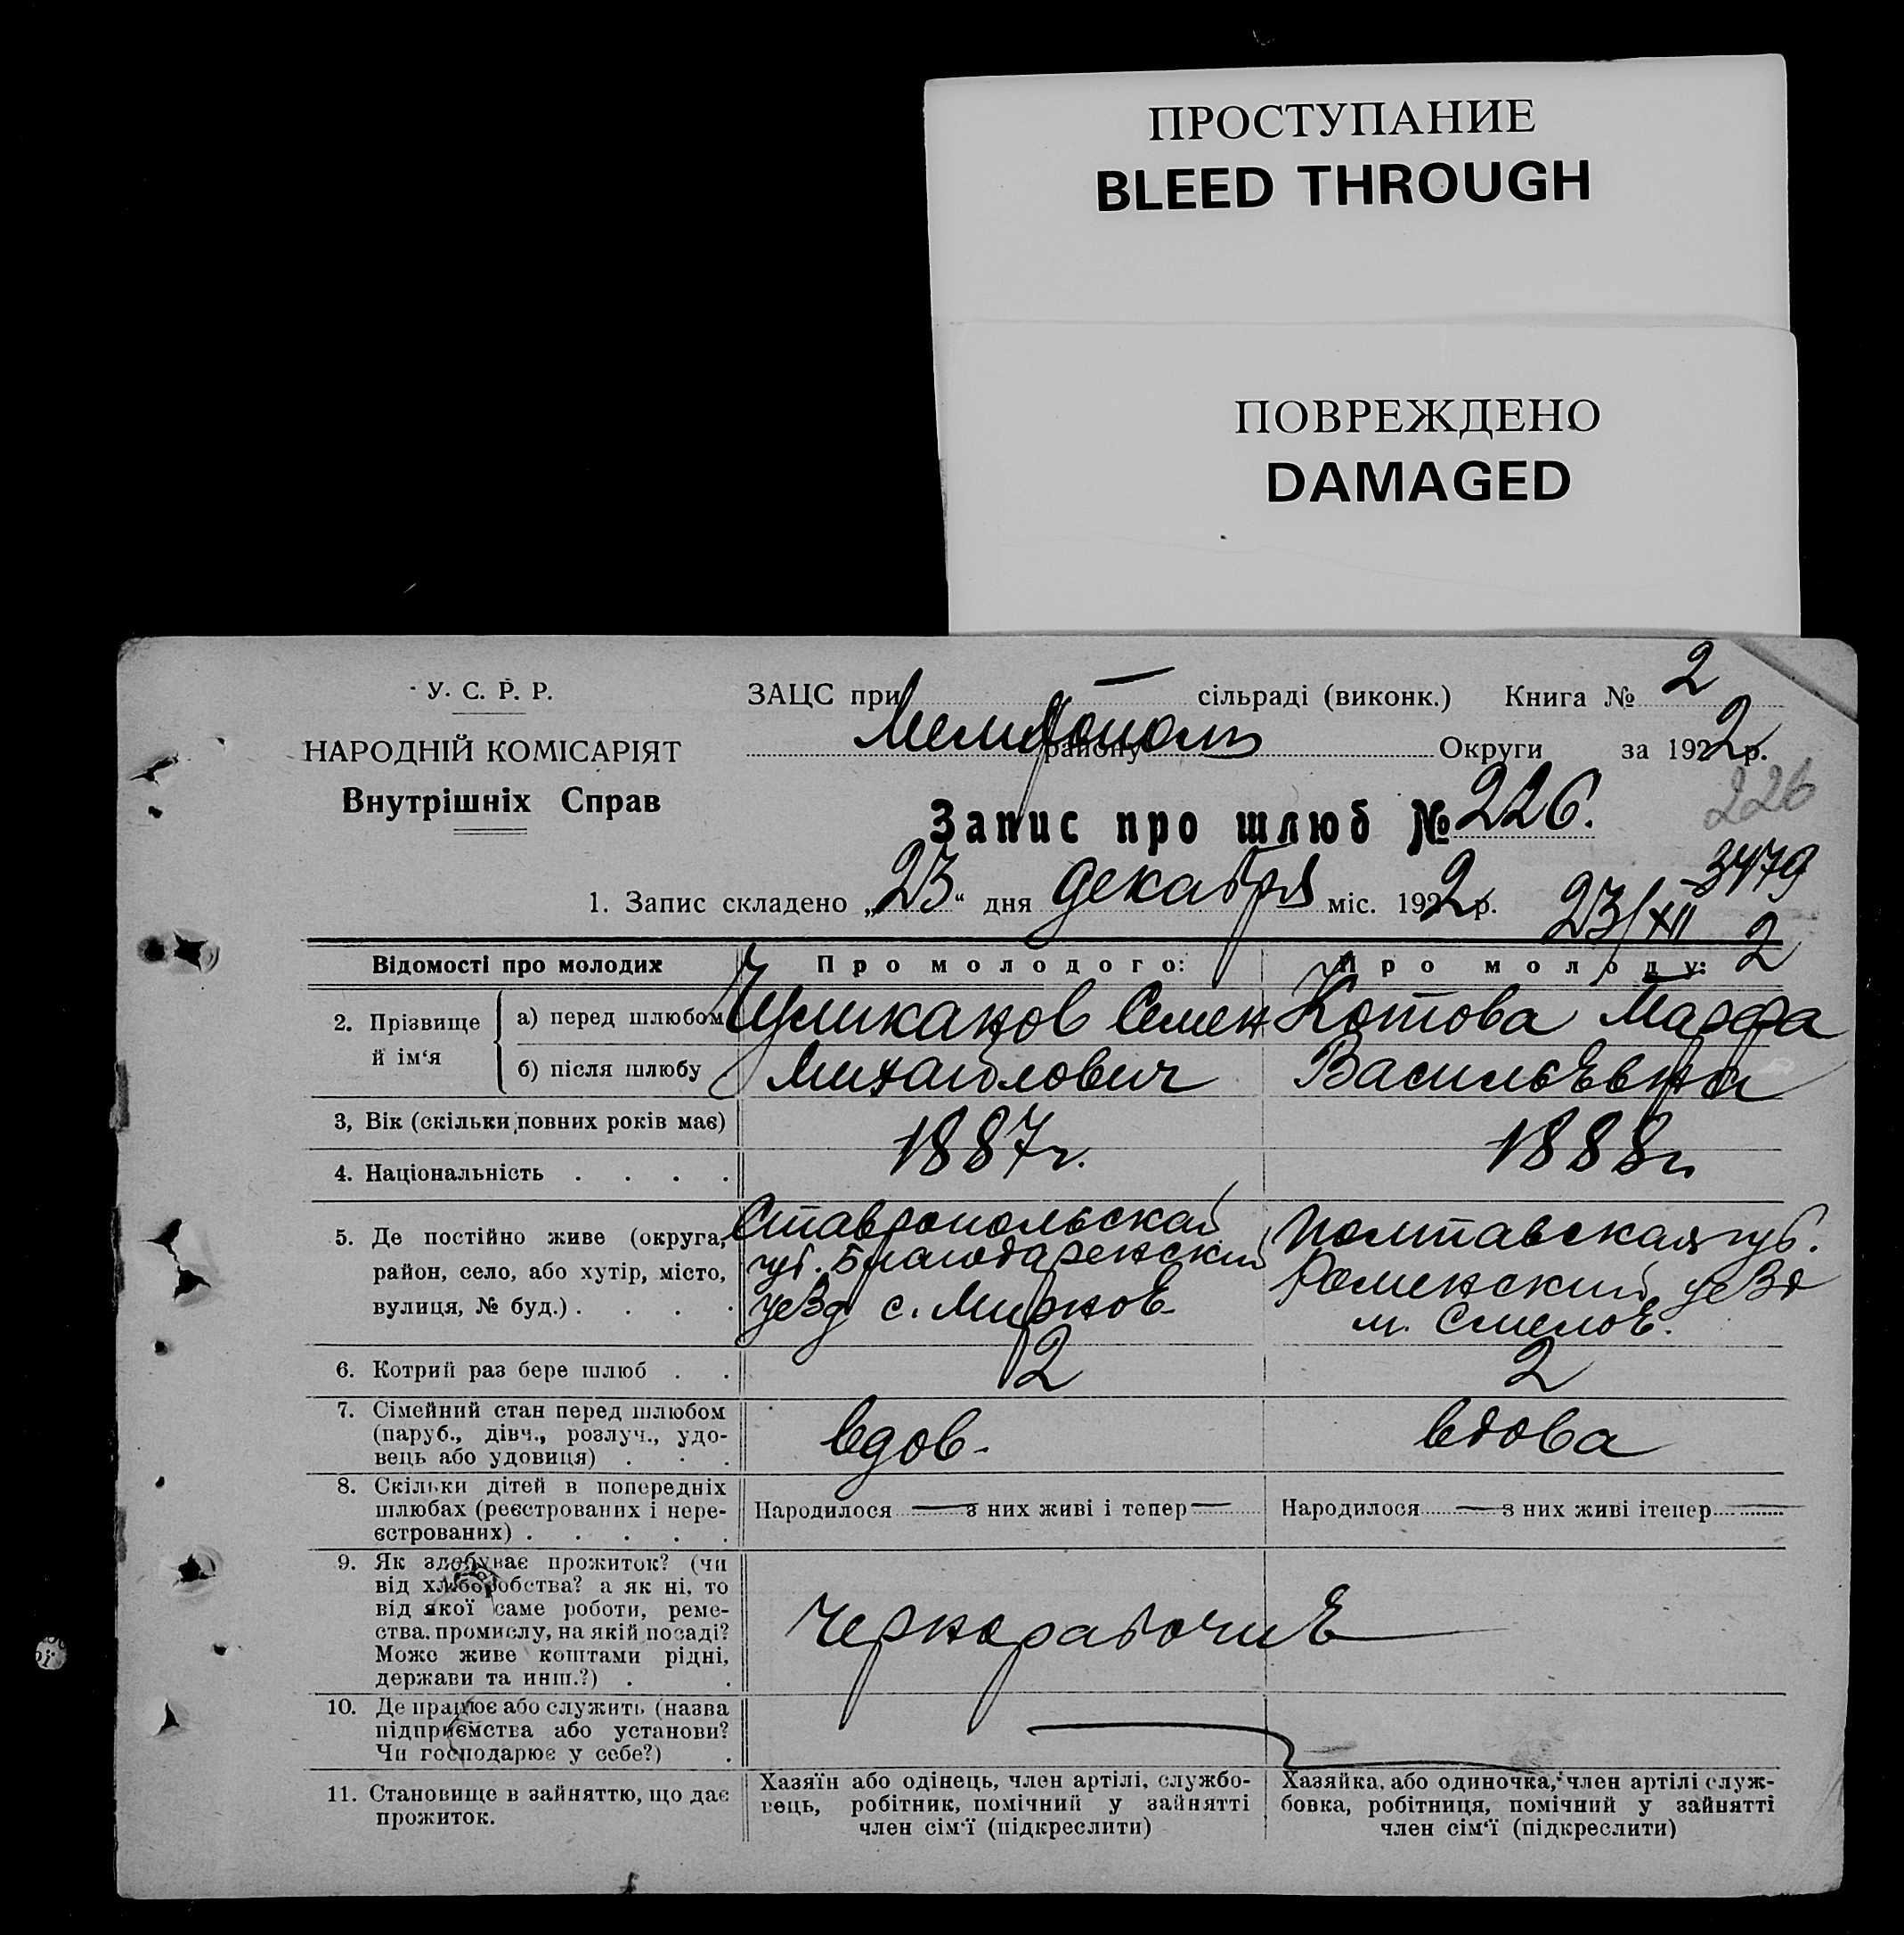 ПРОСТУПАНИЕ
BLEED THROUGH
ПОВРЕЖДЕНО
DAMAGED
У. С. Р. Р.
НАРОДНІЙ КОМІСАРІЯТ
Внутрішніх Справ
ЗАЦС при — сільраді (виконк.) Книга № 2
Мелитополь району Округи за 1922 р.
226
Запис про шлюб № 226.
3479
1. Запис складено „23“ дня декабря міс. 1922 р. 23/XII 2
Відомості про молодих Про молодого: Про молоду:
2. Прізвище й ім‘я
а) перед шлюбом Семен Котова Марфа
б) після шлюбу Михайлович Васильевна
3, Вік (скільки повних років має) 1887г. 1888г
4. Національність . . . .
5. Де постійно живе (округа, район, село, або хутір, місто, вулиця, № буд.) . . . .
Ставропольская
губ. Благодаренский
уезд с.
Полтавская губ.
Роменский уезд
м. Смелое.
6. Котрий раз бере шлюб . . 2 2
7. Сімейний стан перед шлюбом
(паруб., дівч., розлуч., удо-
вець або удовиця) . . . вдов. вдова
8. Скільки дітей в попередніх
шлюбах (реєстрованих і нере-
єстрованих) . . . . .
Народилося — з них живі і тепер —
Народилося — з них живі ітепер —
9. Як здобуває прожиток? (чи
від хліборобства? а як ні, то
від якої саме роботи, реме-
ства, промислу, на якій посаді?
Може живе коштами рідні,
держави та инш.?) . .
чернорабочие
10. Де працює або служить (назва
підприємства або установи?
Чи господарює у себе?) .
11. Становище в зайняттю, що дає
прожиток.
Хазяїн або одінець, член артілі, службо-
вець, робітник, помічний у зайнятті
член сім‘ї (підкреслити)
Хазяйка, або одиночка, член артілі служ-
бовка, робітниця, помічний у зайнятті
член сім‘ї (підкреслити)